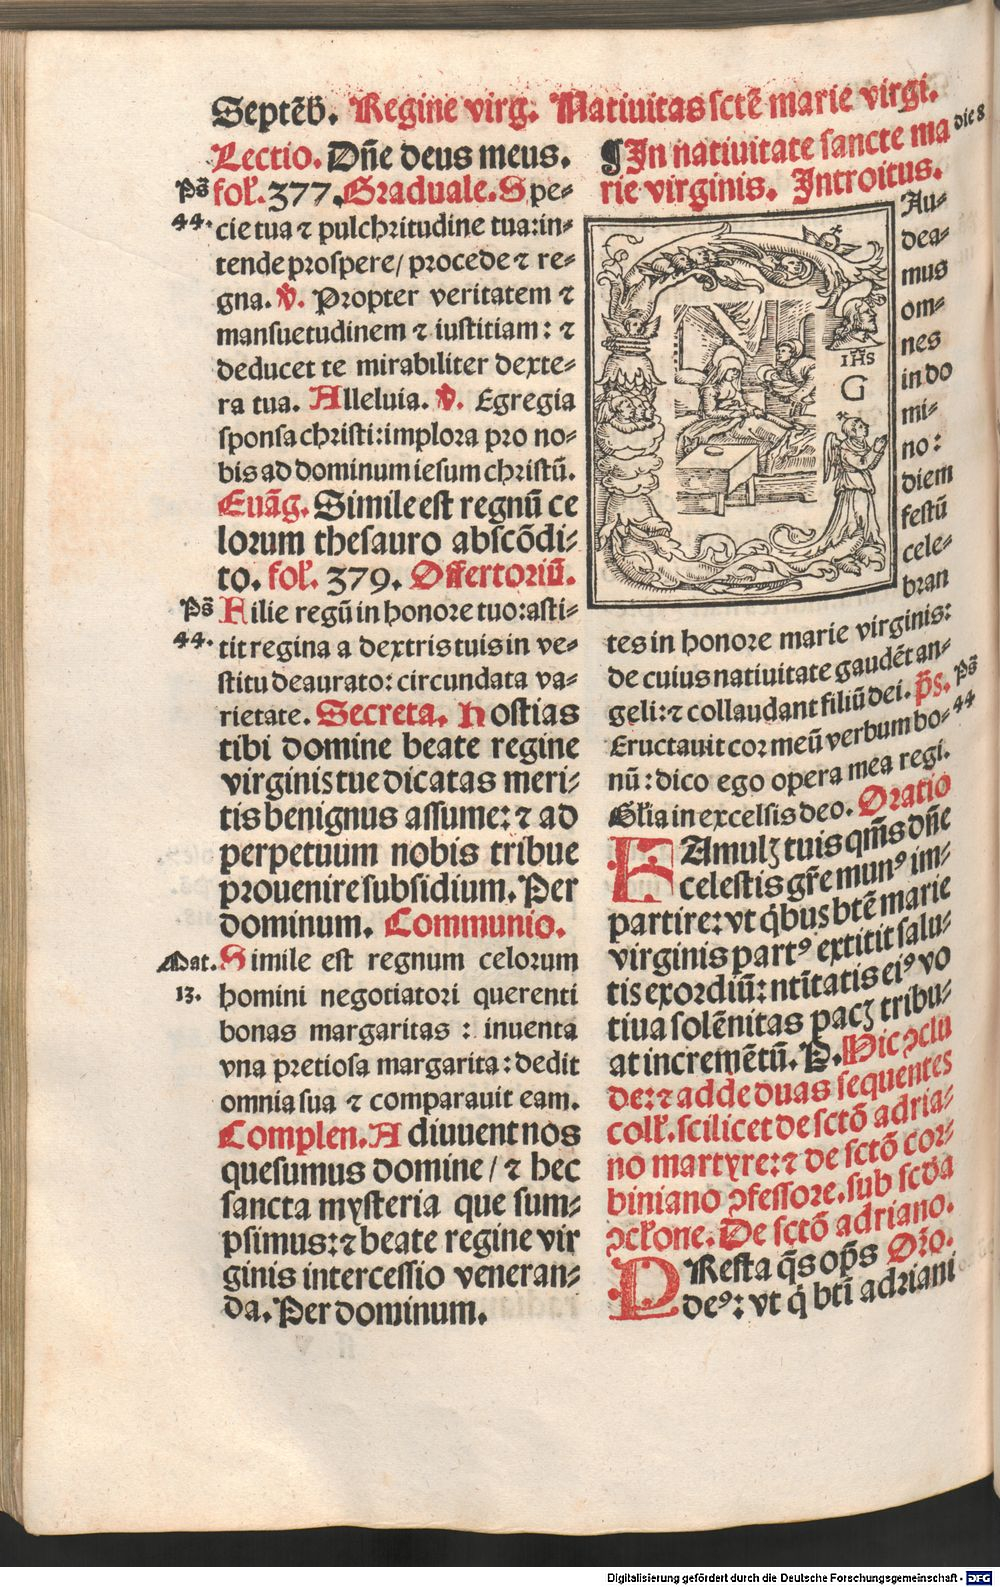 Septēb̄. Regine virg. Natiuitas sctē marie virgi.
Lectio. Dn̄e deus meus.
Ps̄ fol. 377. Graduale. Spe-
44. cie tua ⁊ pulchritudine tua: in-
tende prospere / procede ⁊ re-
gna. ℣. Propter veritatem ⁊
mansuetudinem ⁊ iustitiam: ⁊
deducet te mirabiliter dexte-
ra tua. Alleluia. ℣. Egregia
sponsa christi: implora pro no-
bis ad dominum iesum christū.
Euāg. Simile est regnū ce
lorum thesauro abscōdi-
to. fol. 379. Offertoriū.
Ps̄ Filie regū in honore tuo: asti-
44. tit regina a dextris tuis in ve-
stitu deaurato: circundata va-
rietate. Secreta. Hostias
tibi domine beate regine
virginis tue dicatas meri-
tis benignus assume: ⁊ ad
perpetuum nobis tribue
prouenire subsidium. Per
dominum. Communio.
Mat. Simile est regnum celorum
13. homini negotiatori querenti
bonas margaritas : inuenta
vna pretiosa margarita: dedit
omnia sua ⁊ comparauit eam.
Complen. Adiuuent nos
quesumus domine / ⁊ hec
sancta mysteria que sum-
psimus: ⁊ beate regine vir
ginis intercessio veneran-
da. Per dominum.
¶ In natiuitate sancte ma die 8
rie virginis. Introitus.
Au-
dea-
mus
om-
nes
in do
mi-
no:
diem
festū
cele-
bran
IHS
G
tes in honore marie virginis:
de cuius natiuitate gaudēt an-
geli: ⁊ collaudant filiū dei. p̄s. Ps̄
Eructauit cor meū verbum bo- 44
nū: dico ego opera mea regi.
Gl̄ia in excelsis deo. Oratio
FAmulꝫ tuis qm̄s dn̄e
celestis gr̄e munꝰ im-
partire: vt q̄bus btē marie
virginis partꝰ extitit salu-
tis exordiū: ntītatis eiꝰ vo
tiua solēnitas pacꝫ tribu-
at incremētū. P. Hic ↄclu
de: ⁊ adde duas sequentes
coll̄. scilicet de sctō adria-
no martyre: ⁊ de sctō cor-
biniano ↄfessore. sub scd̄a
ↄcl̄one. De sctō adriano.
PResta q̄s op̄s Or̄o.
deꝰ: vt q̄ btī adriani
Digitalisierung gefördert durch die Deutsche Forschungsgemeinschaft - DFG